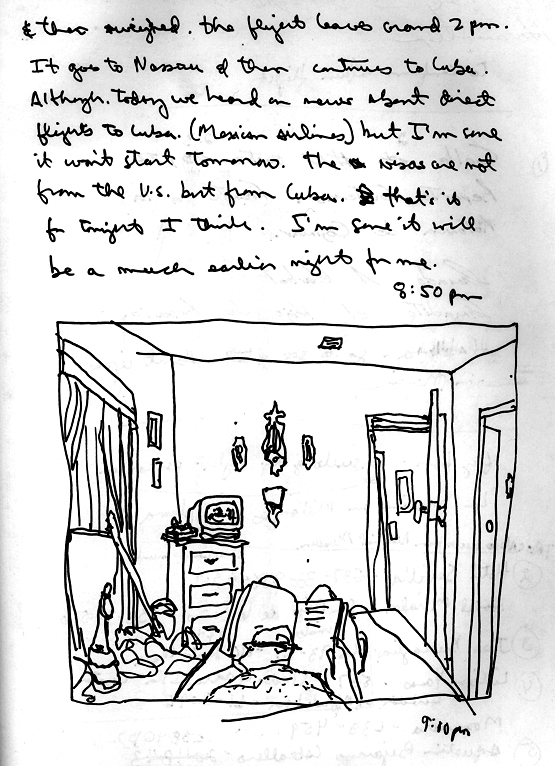 & then weighed. The flight leaves around 2 pm.
It goes to Nassau & then continues to Cuba.
Although, today we heard on news about direct
flights to Cuba. (Mexican airlines) but I'm sure
it won't start tomorrow. The visas are not
from the U.S. but from Cuba. that's it
for tonight I think. I'm sure it will
be a much earlier night for me.
8:50 pm
9:10 pm